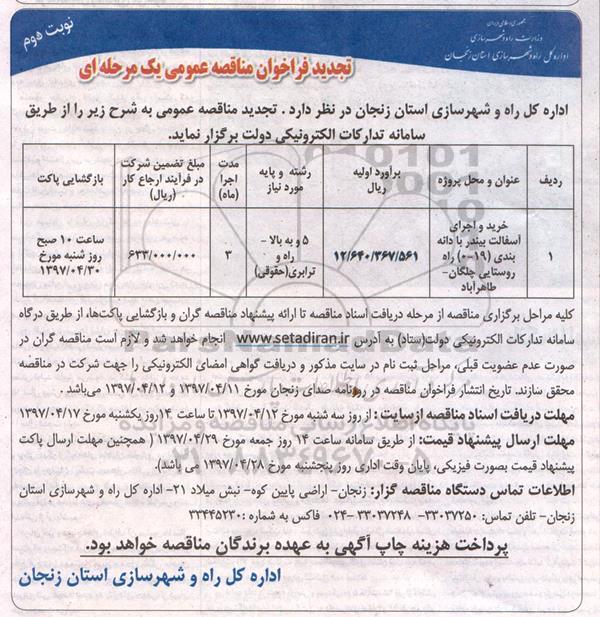 جمهوری اسلامی ایران
وزارت راه و شهرسازی
اداره کل راه و شهرسازی استان زنجان
نوبت دوم
تجدید فراخوان مناقصه عمومی یک مرحله ای
اداره کل راه و شهرسازی استان زنجان در نظر دارد . تجدید مناقصه عمومی به شرح زیر را از طریق
سامانه تدارکات الکترونیکی دولت برگزار نماید.
ردیف | عنوان و محل پروژه | برآورد اولیه ریال | رشته و پایه مورد نیاز | مدت اجرا (ماه) | مبلغ تضمین شرکت در فرآیند ارجاع کار (ریال) | بازگشایی پاکت
۱ | خرید و اجرای آسفالت بیندر با دانه بندی (۱۹-۰) راه روستایی چلگان- طاهرآباد | ۱۲/۶۴۰/۳۶۷/۵۶۱ | ۵ و به بالا - راه و ترابری(حقوقی) | ۳ | ۶۳۳/۰۰۰/۰۰۰ | ساعت ۱۰ صبح روز شنبه مورخ ۱۳۹۷/۰۴/۳۰
کلیه مراحل برگزاری مناقصه از مرحله دریافت اسناد مناقصه تا ارائه پیشنهاد مناقصه گران و بازگشایی پاکت‌ها، از طریق درگاه
سامانه تدارکات الکترونیکی دولت(ستاد) به آدرس www.setadiran.ir انجام خواهد شد و لازم است مناقصه گران در
صورت عدم عضویت قبلی، مراحل ثبت نام در سایت مذکور و دریافت گواهی امضای الکترونیکی را جهت شرکت در مناقصه
محقق سازند. تاریخ انتشار فراخوان مناقصه در روزنامه صدای زنجان مورخ ۱۳۹۷/۰۴/۱۱ و ۱۳۹۷/۰۴/۱۲ می‌باشد .
مهلت دریافت اسناد مناقصه از سایت : از روز سه شنبه مورخ ۱۳۹۷/۰۴/۱۲ تا ساعت ۱۴ روز یکشنبه مورخ ۱۳۹۷/۰۴/۱۷
مهلت ارسال پیشنهاد قیمت: از طریق سامانه ساعت ۱۴ روز جمعه مورخ ۱۳۹۷/۰۴/۲۹ ( همچنین مهلت ارسال پاکت
پیشنهاد قیمت بصورت فیزیکی، پایان وقت اداری روز پنجشنبه مورخ ۱۳۹۷/۰۴/۲۸ می باشد).
اطلاعات تماس دستگاه مناقصه گزار: زنجان- اراضی پایین کوه- نبش میلاد ۲۱- اداره کل راه و شهرسازی استان
زنجان- تلفن تماس: ۳۳۰۳۷۲۵۰- ۳۳۰۳۷۲۴۸ -۰۲۴ فاکس به شماره :۳۳۴۴۵۲۳۰
پرداخت هزینه چاپ آگهی به عهده برندگان مناقصه خواهد بود.
اداره کل راه و شهرسازی استان زنجان